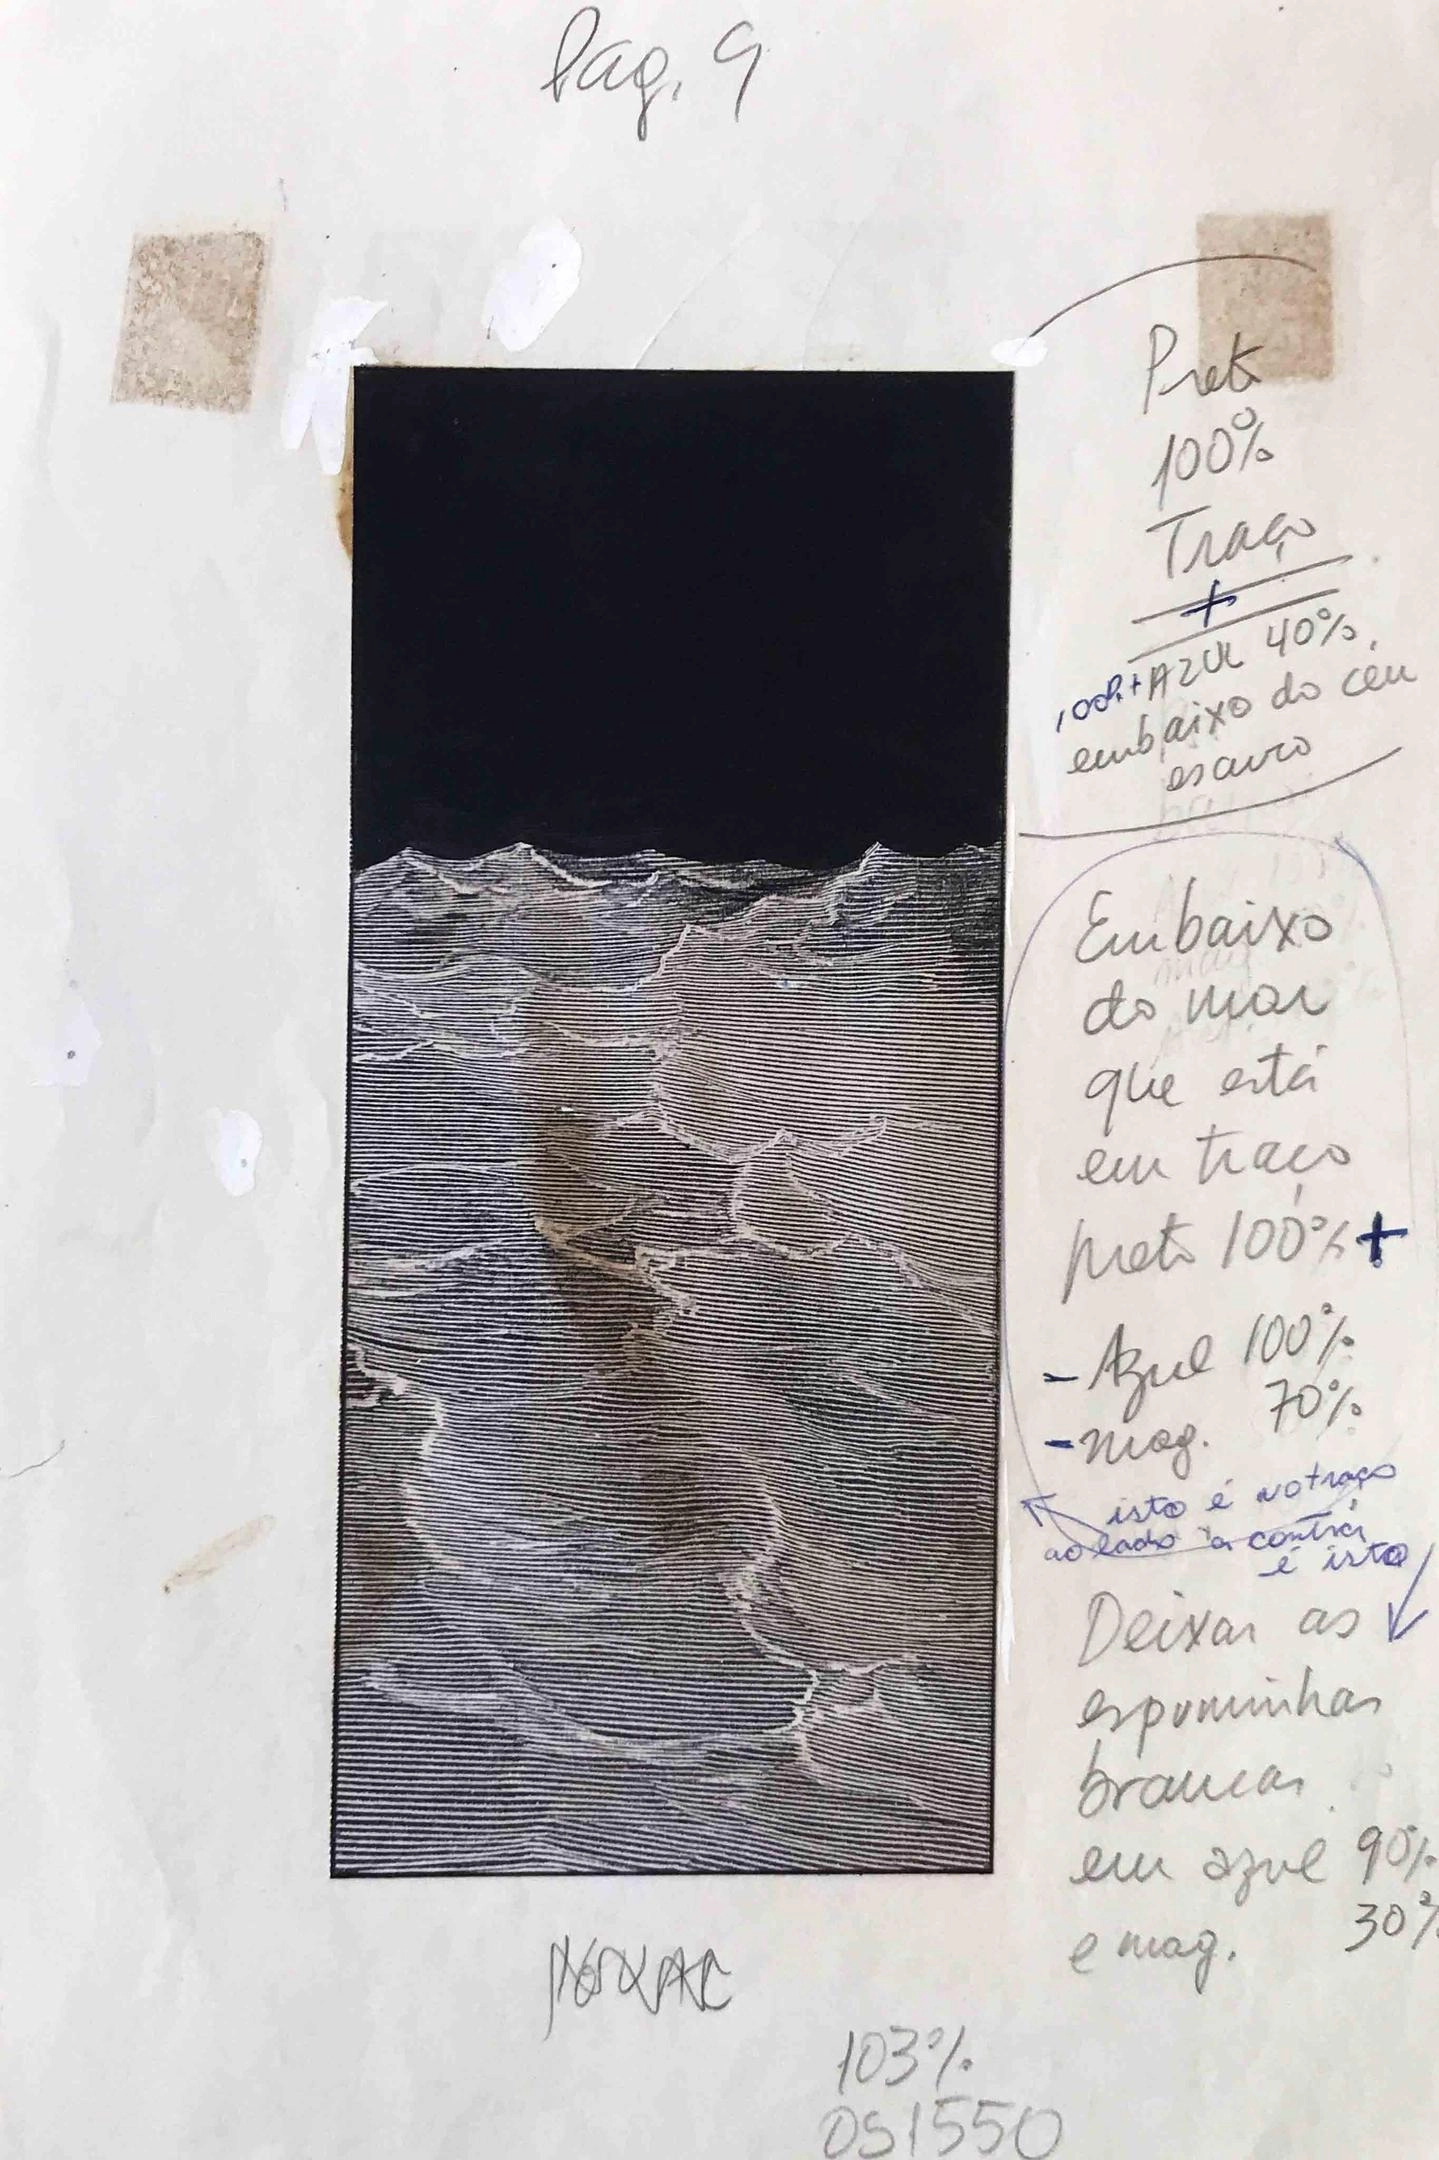 Pag. 9
Preto
100%
Traço
+
100% + AZUL 40%.
embaixo do céu
escuro
Embaixo
do mar
que está
em traço
preto 100% +
- Azul 100%
- mag. 70%
isto é no traço
ao lado a contra
é isto
Deixar as
espuminhas
brancas
em azul 90%
e mag. 30%
103%
OS1550